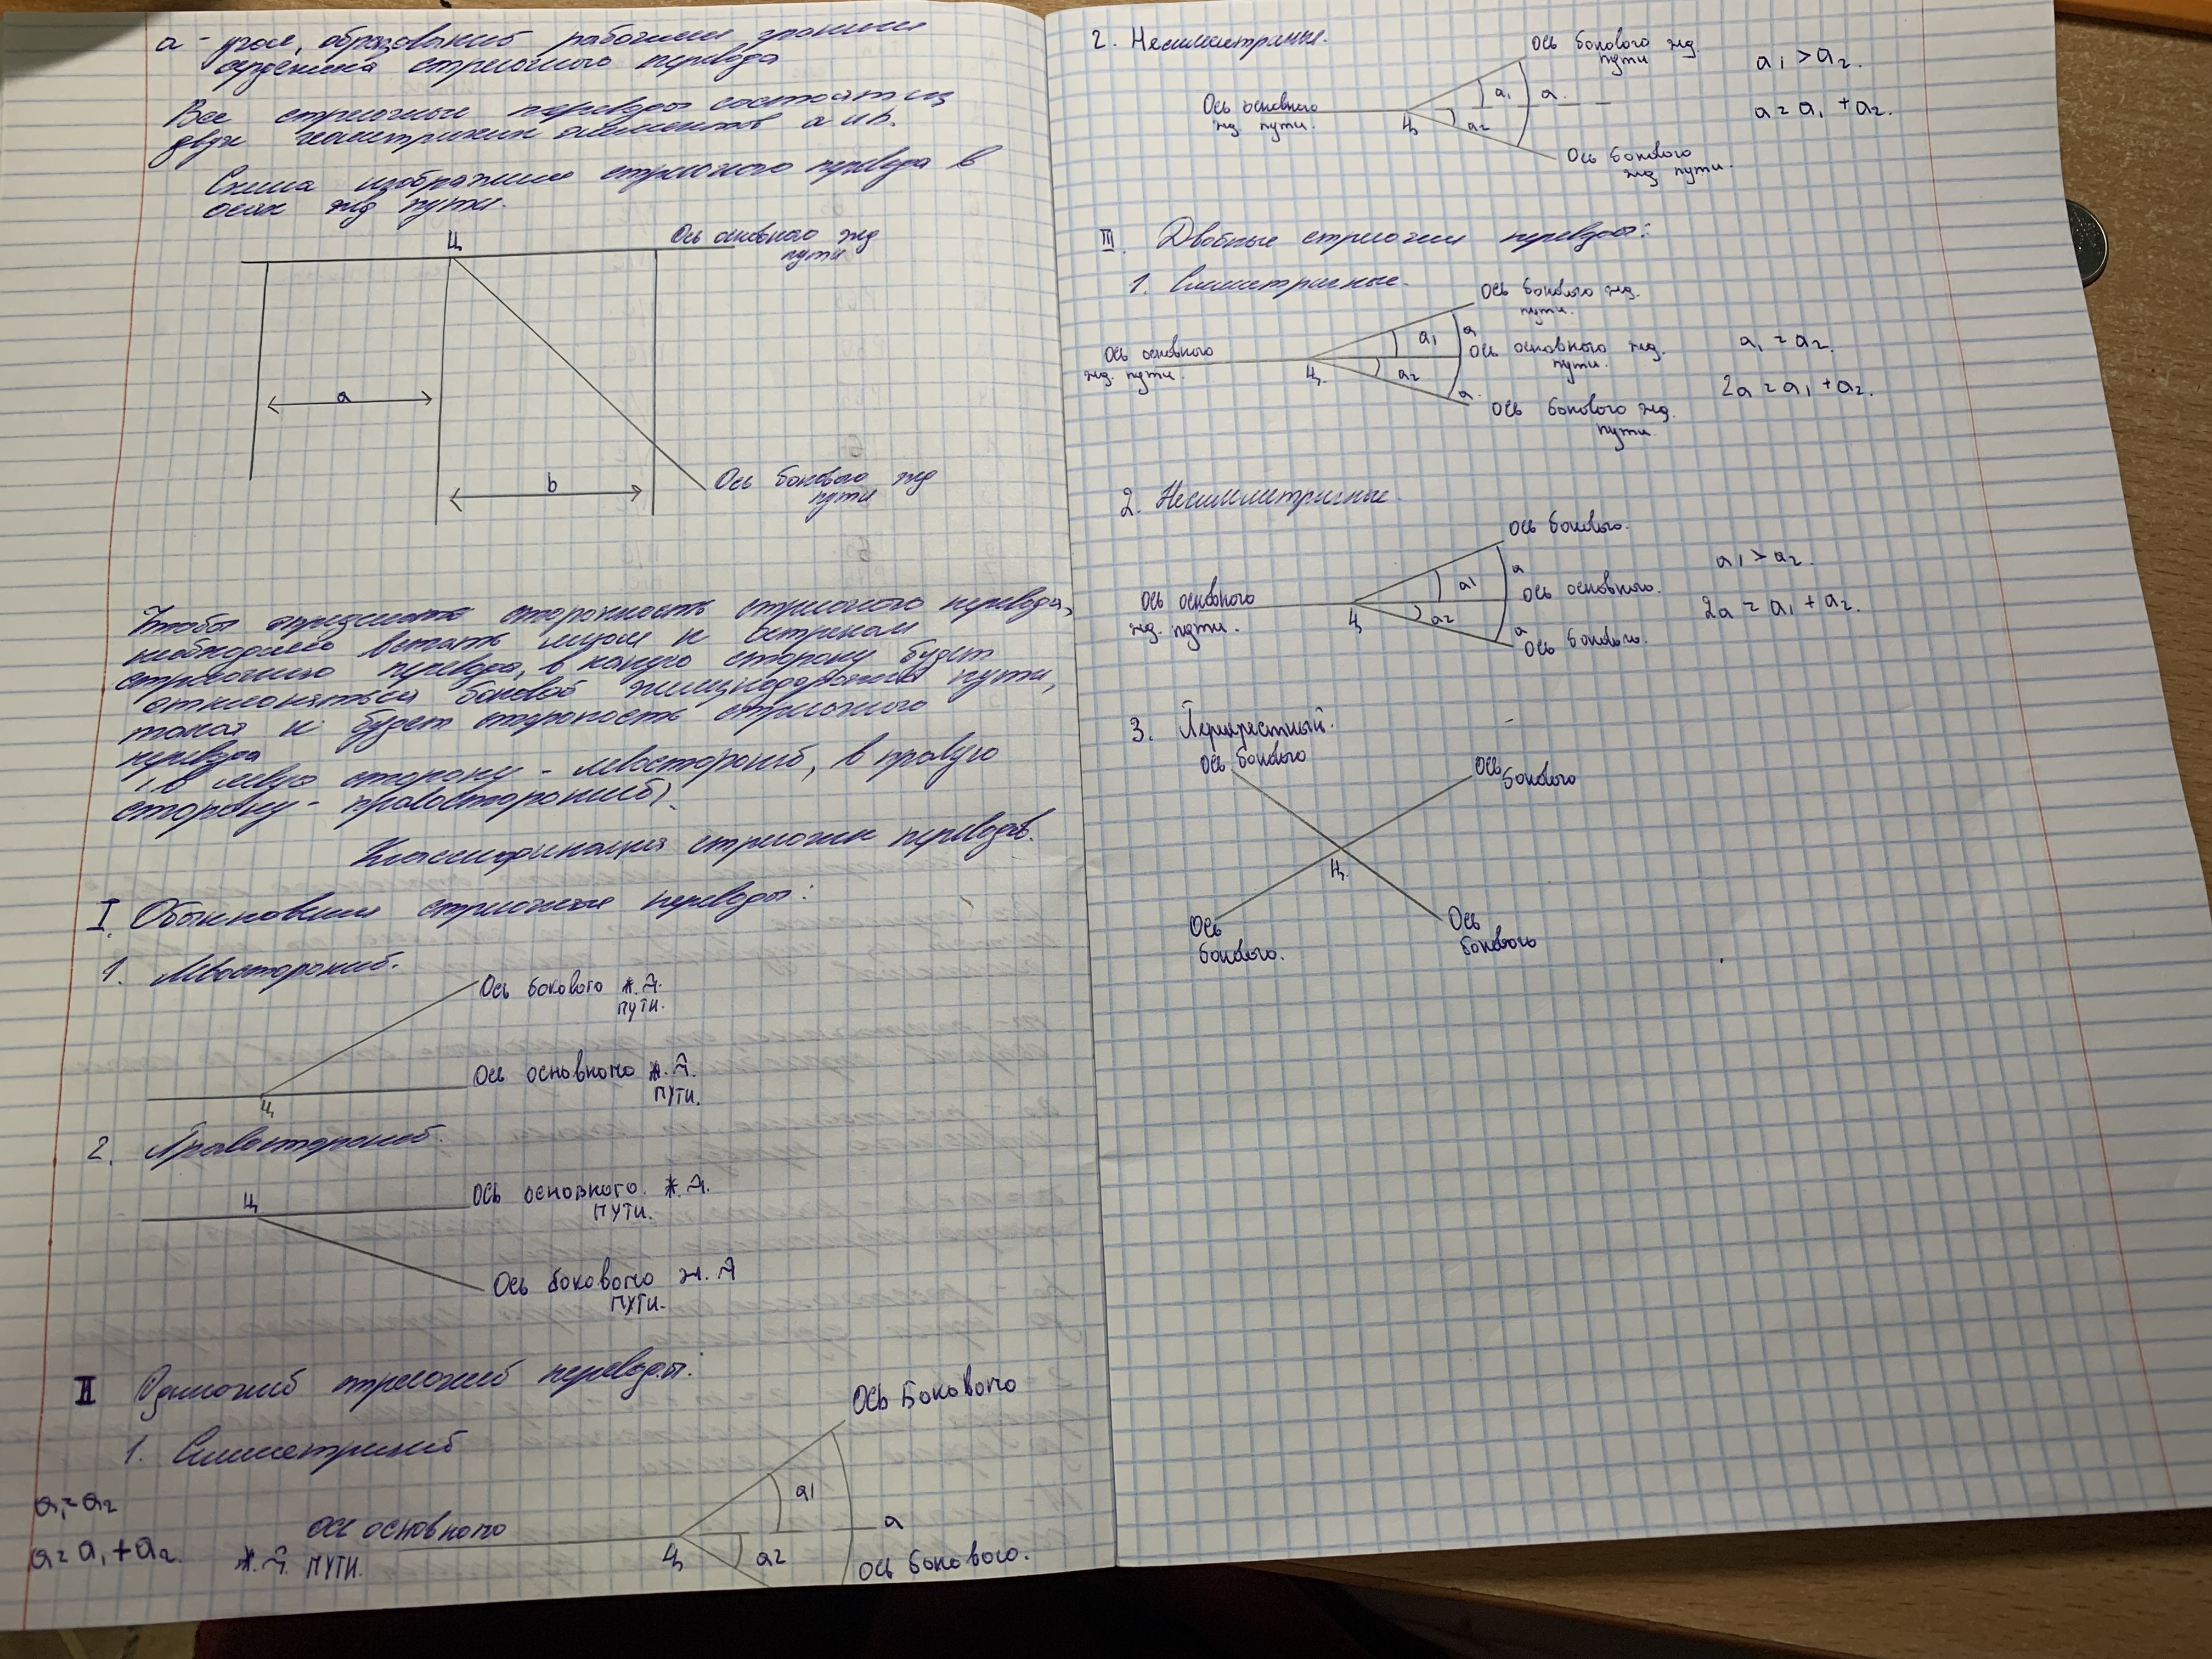 a - угол, образованный рабочими гранями
сердечника стрелочного перевода
Все стрелочные переводы состоят из
двух геометрических элементов a и b.
Схема изображение стрелочного перевода в
осях жд пути.
Ц
Ось основного жд
пути
a
b
Ось бокового жд
пути
Чтобы определить сторонность стрелочного перевода,
необходимо встать лицом к острякам
стрелочного перевода, в какую сторону будет
отклоняться боковой железнодорожный пути,
такая и будет сторонность стрелочного
перевода
(в левую сторону - левосторонний, в правую
сторону - правосторонний).
Классификация стрелочных переводов.
I. Обыкновенные стрелочные переводы:
1. Левосторонний.
Ось бокового ж.д.
пути.
Ось основного ж.д.
пути.
Ц
2. Правосторонний.
Ц
Ось основного ж.д.
пути.
Ось бокового ж.д
пути.
II Одиночный стрелочный переводы:
1. Симметричный
Ось бокового
a₁ = a₂
a = a₁ + a₂.
Ось основного
ж.д. пути.
Ц
a1
a
a2
Ось бокового.
2. Несимметричные.
Ось бокового жд.
пути
a₁ > a₂.
Ось основного
жд пути.
Ц
a₁
a
a₂
a = a₁ + a₂.
Ось бокового
жд пути.
III. Двойные стрелочные переводы:
1. Симметричные.
Ось бокового жд.
пути.
Ось основного
жд. пути.
Ц.
a₁
a
Ось основного жд.
пути.
a₂
a
a₁ = a₂.
2a = a₁ + a₂.
Ось бокового жд.
пути.
2. Несимметричные.
Ось бокового.
Ось основного
жд. пути.
Ц
a1
a
Ось основного.
a2
a
a₁ > a₂.
2a = a₁ + a₂.
Ось бокового.
3. Перекрестный.
Ось бокового
Ось
бокового
Ц.
Ось
бокового.
Ось
бокового